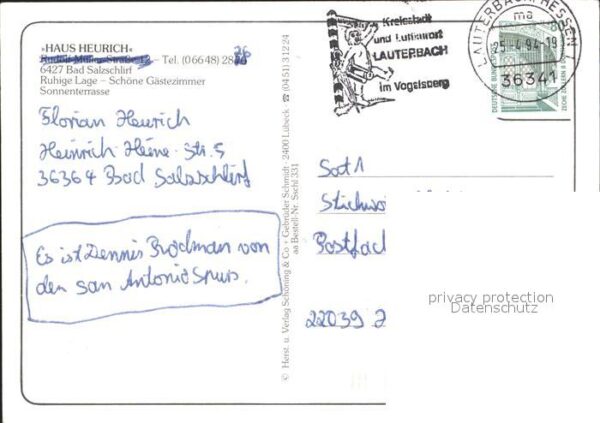 »HAUS HEURICH«
Rudolf Müller-Straße 12 – Tel. (06648) 28
6427 Bad Salzschlirf
Ruhige Lage – Schöne Gästezimmer
Sonnenterrasse
Florian Heurich
Heinrich-Heine-Str. 5
36364 Bad Salzschlirf
Es ist Dennis Rodman von
den san Antonio Spurs.
© Herst. u. Verlag Schöning & Co · Gebrüder Schmidt · 2400 Lübeck ☎ (0451) 31224
aa Bestell-Nr. Sschl 331
Kreisstadt
und Luftkurort
LAUTERBACH
im Vogelsberg
LAUTERBACH, HESSEN
ma
25.-4.94-19
36341
DEUTSCHE BUNDESPOST
Sat 1
Postfach
22039
privacy protection
Datenschutz